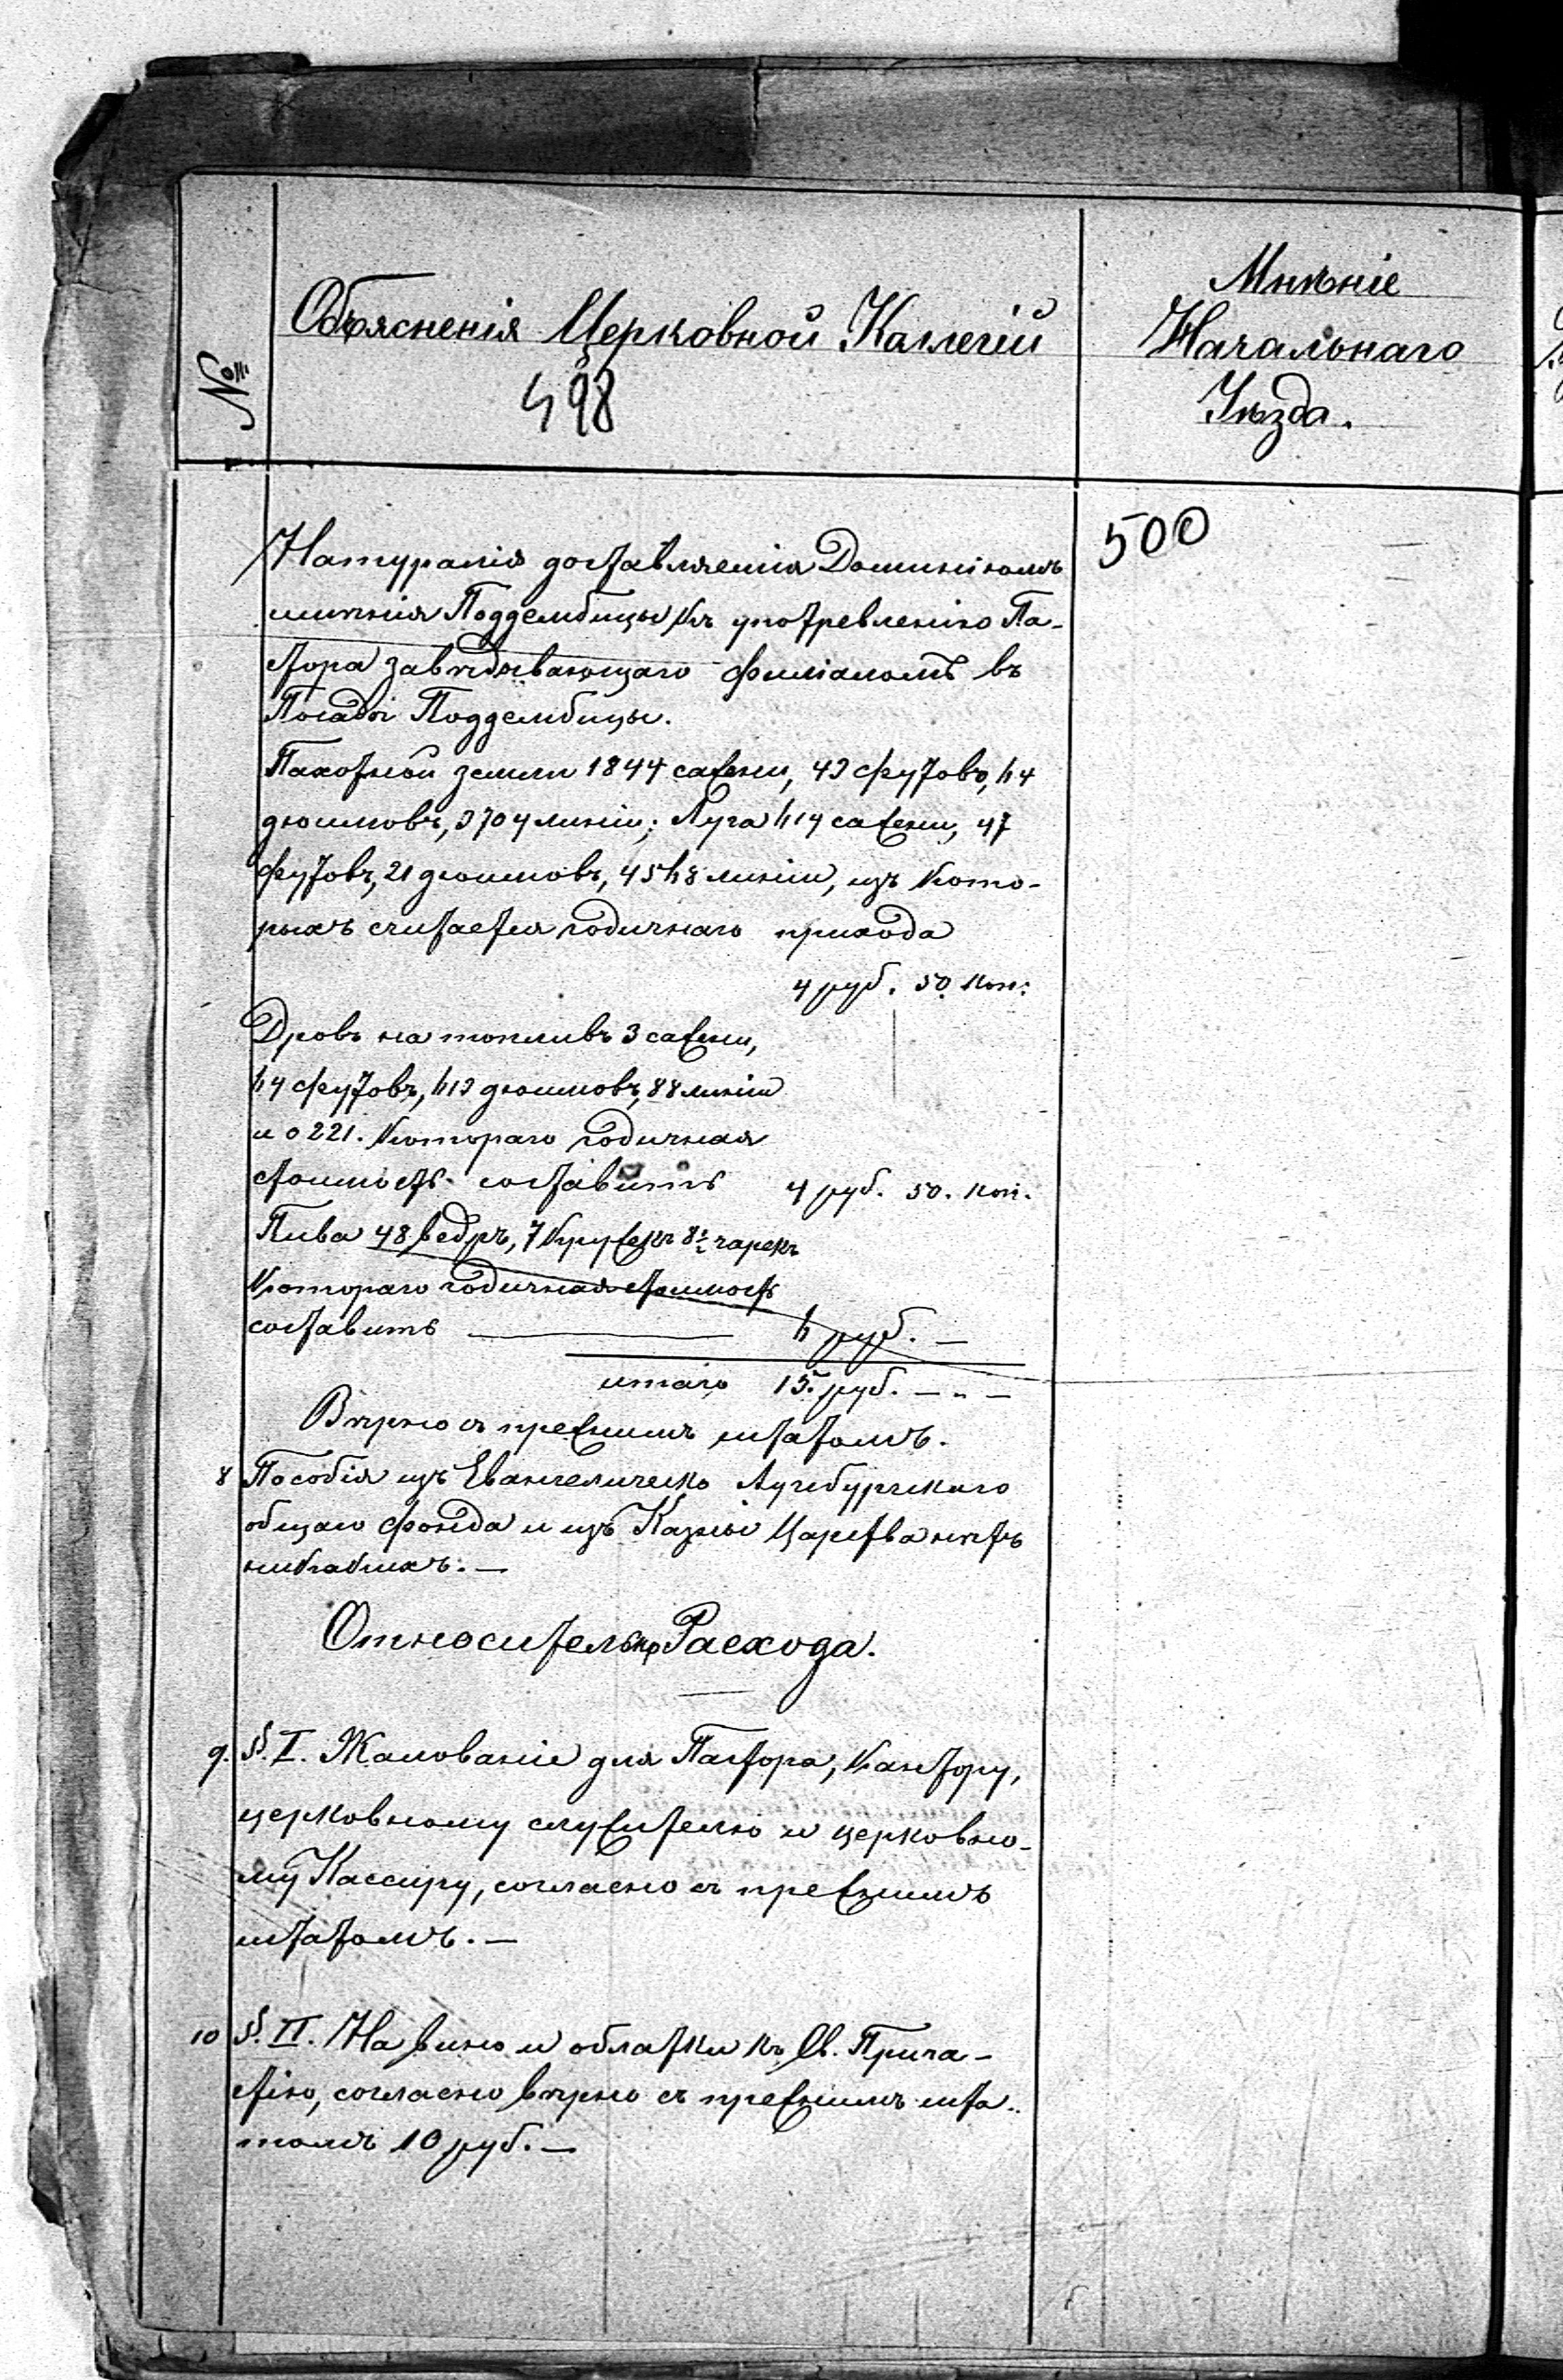 №
Объясненія Церковной Каллегіи
498
Мнѣніе
Начальнаго
Уѣзда.
500
Натуралія доставляемія Доминіномъ
имѣнія Поддембицы къ употребленію Па-
стора завѣдывающаго филіаломъ въ
Посадѣ Поддембицы.
Пахотной земли 1844 сажени, 43 футовъ, 64
дюймовъ, 3704 линіи; Луга 614 сажени, 47
футовъ, 21 дюймовъ, 4568 линіи, изъ кото-
рыхъ считается годичнаго прихода
4 руб. 50. коп:
Дровъ на топливъ 3 сажени,
64 футовъ, 613 дюймовъ, 88 линіи
и 0221. Котораго годичная
стоимость составитъ 4 руб. 50. коп.
Пива 48 ведръ, 7 кружекъ 8 чарекъ
Котораго годичная стоимость
составитъ — 6 руб. —
итаго 15. руб. — „ —
Вѣрно съ прежнимъ штатомъ.
8 Пособія изъ Евангелическо Аугсбургскаго
общаго фонда и изъ Казны Царства нѣтъ
никакихъ. —
Относительно Расхода.
9. §. I. Жалованіе для Пастора, Кантору,
церковному служителю и церковно-
му Кассиру, согласно съ прежнимъ
штатомъ. —
10 §. II. На вино и облатки къ Св. Прича-
стію, согласно вѣрно съ прежнимъ шта-
томъ 10 руб. —